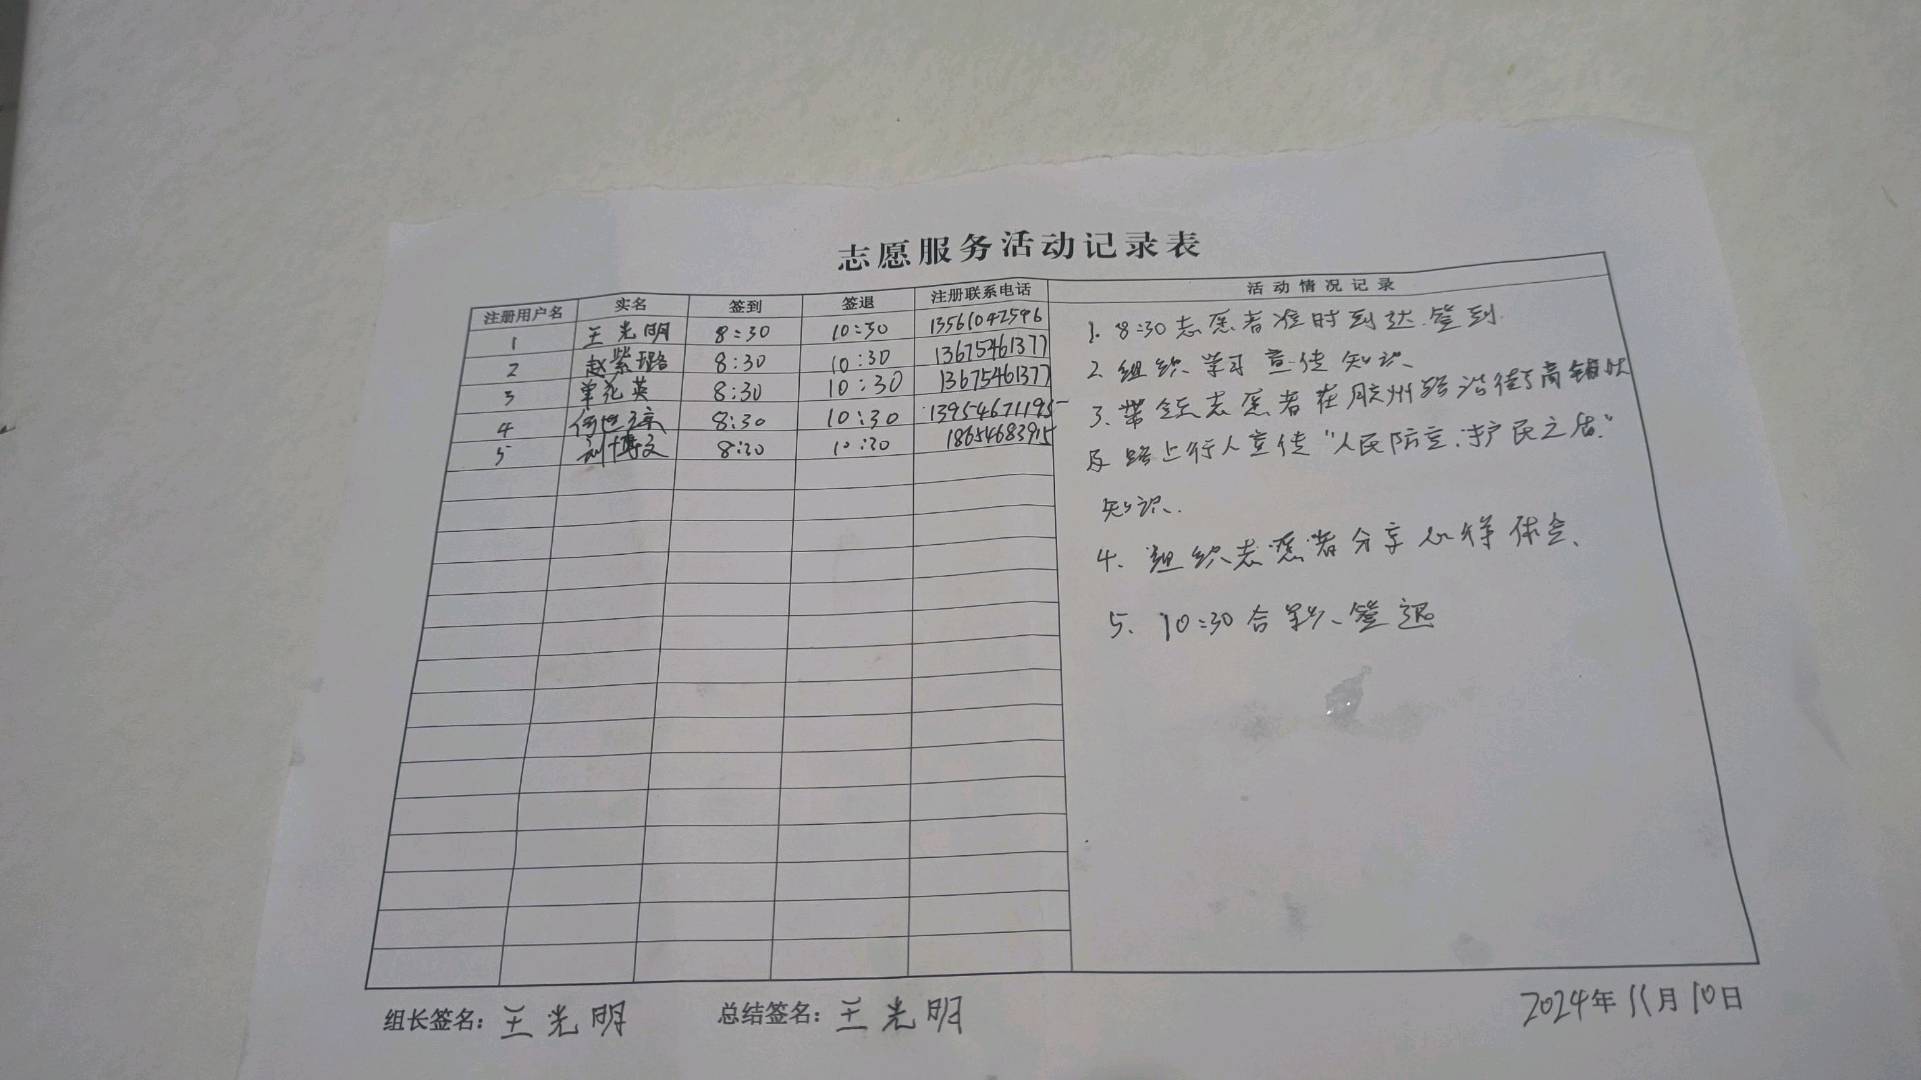 志愿服务活动记录表
注册用户名 实名 签到 签退 注册联系电话 活动情况记录
1 王光明 8:30 10:30 13561042596
2 赵紫璐 8:30 10:30 13675461377
3 单花英 8:30 10:30 13675461377
4 8:30 10:30 13954671195
5 刘博文 8:30 10:30 18654683915
1. 8:30志愿者准时到达.签到.
2. 组织学习宣传知识、
3. 带领志愿者在胶州路沿街商铺以
及路上行人宣传"人民防空.护民之盾."
知识.
4. 组织志愿者分享心得体会、
5. 10:30合影、签退
组长签名: 王光明 总结签名: 王光明 2024年11月10日